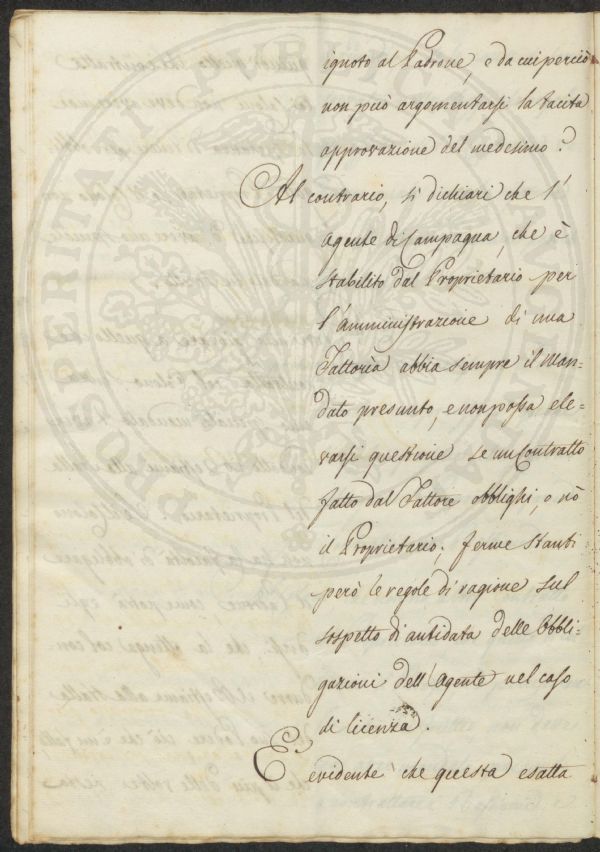 ignoto al Padrone, e da cui perciò
non può argomentarsi la tacita
approvazione del medesimo?
Al contrario, si dichiari che l'
Agente di Campagna, che è
stabilito dal Proprietario per
l'amministrazione di una
Fattoria abbia sempre il Man=
dato presunto, e non possa ele=
varsi questione se un Contratto
fatto dal Fattore obblighi, o nò
il Proprietario; ferme stanti
però le regole di ragione sul
sospetto di antidata delle Obbli=
gazioni dell'Agente nel caso
di licenza.
È evidente che questa esatta
PROSPERITATI PVBLICAE